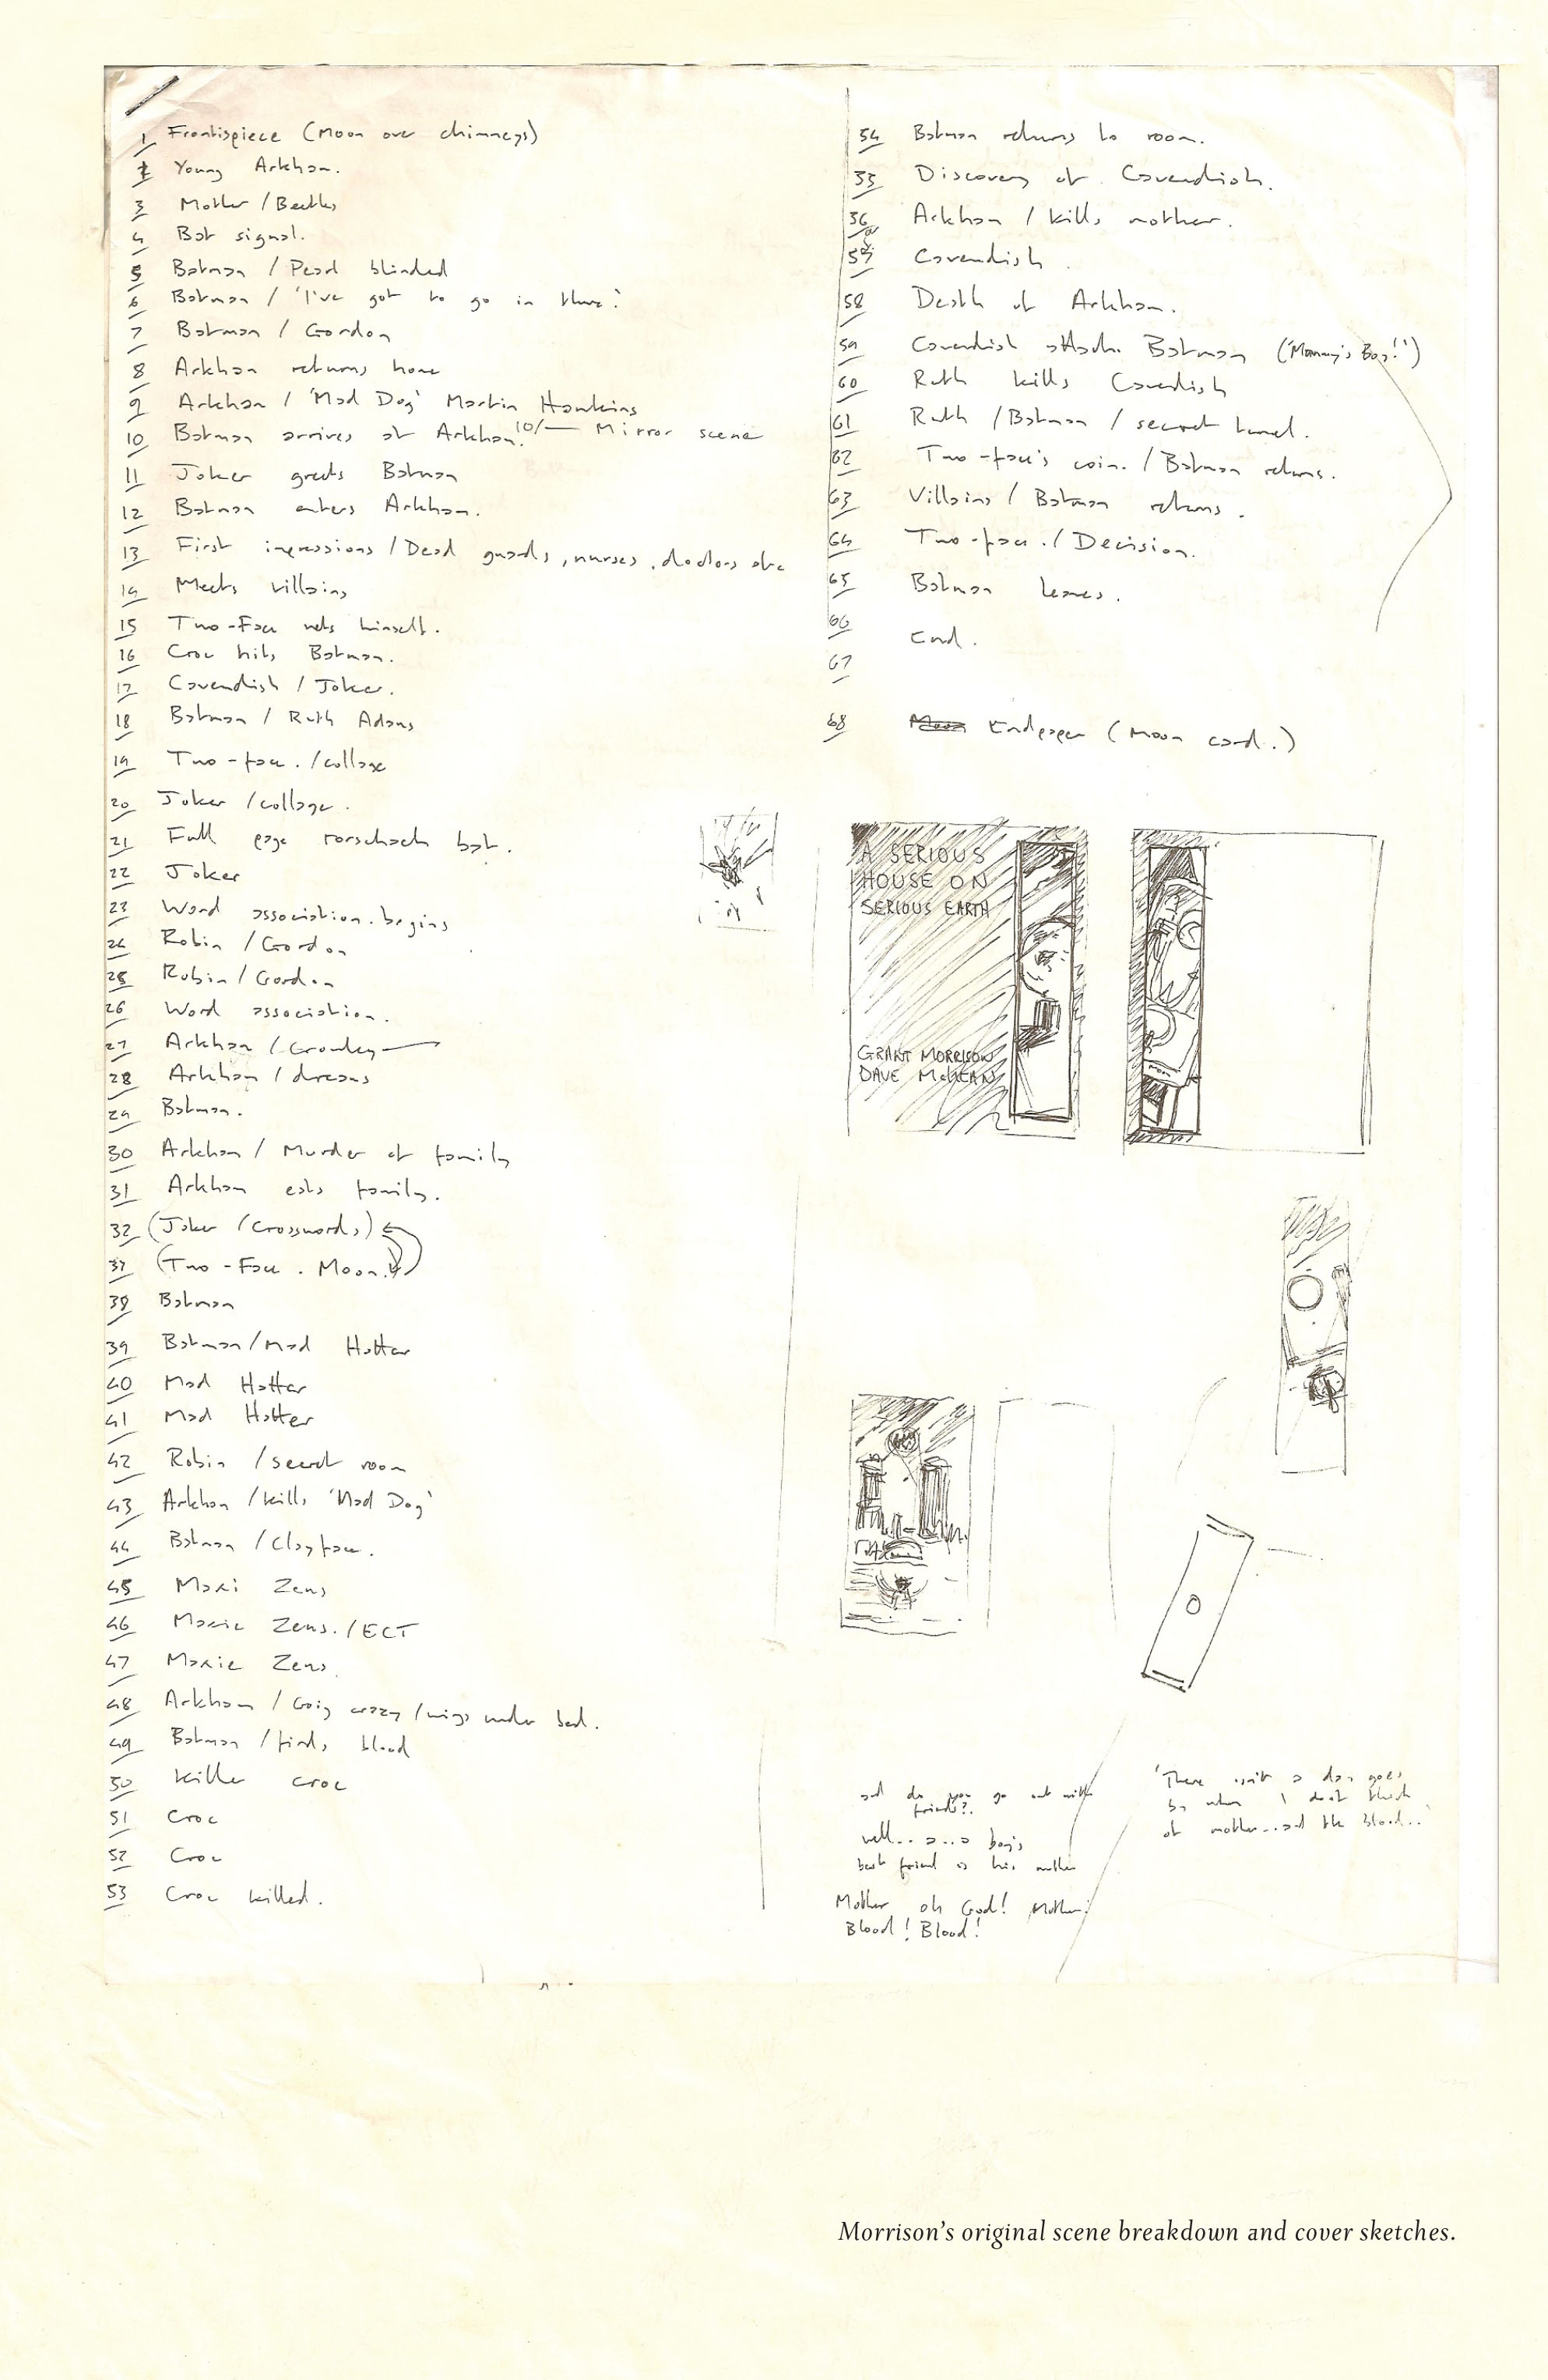 1 Frontispiece (Moon over chimneys)
2 Young Arkham.
3 Mother / Beetles
4 Bat signal.
5 Batman / Pearl blinded
6 Batman / 'I've got to go in there.'
7 Batman / Gordon
8 Arkham returns home
9 Arkham / 'Mad Dog' Martin Hawkins
10 Batman arrives at Arkham. 10/— Mirror scene
11 Joker greets Batman
12 Batman enters Arkham.
13 First impressions / Dead guards, nurses, doctors etc
14 Meets villains
15 Two-Face wets himself.
16 Croc hits Batman.
17 Cavendish / Joker.
18 Batman / Ruth Adams
19 Two-face. / collage
20 Joker / collage.
21 Full page rorschach bat.
22 Joker
23 Word association begins
24 Robin / Gordon
25 Robin / Gordon
26 Word association.
27 Arkham / Crowley
28 Arkham / dreams
29 Batman.
30 Arkham / Murder of family
31 Arkham eats family.
32 (Joker / Crosswords)
37 (Two-Face. Moon.)
38 Batman
39 Batman / Mad Hatter
40 Mad Hatter
41 Mad Hatter
42 Robin / secret room
43 Arkham / kills 'Mad Dog'
44 Batman / Clayface.
45 Maxi Zeus
46 Maxie Zeus. / ECT
47 Maxie Zeus.
48 Arkham / Going crazy / wings under bed.
49 Batman / finds blood
50 Killer Croc
51 Croc
52 Croc
53 Croc killed.
54 Batman returns to room.
55 Discovery of Cavendish.
56 Arkham / kills mother.
57 Cavendish.
58 Death of Arkham.
59 Cavendish attacks Batman ('Mommy's Boy!')
60 Ruth kills Cavendish
61 Ruth / Batman / secret tunnel.
62 Two-face's coin. / Batman returns.
63 Villains / Batman returns.
64 Two-face. / Decision.
65 Batman leaves.
66
End.
67
68 Endpaper (Moon card.)
A SERIOUS
HOUSE ON
SERIOUS EARTH
GRANT MORRISON
DAVE McKEAN
and do you go out with
friends?
well... a... a boy's
best friend is his mother
Mother oh God! Mother!
Blood! Blood!
'There isn't a day goes
by when I don't think
of mother... and the blood...'
Morrison's original scene breakdown and cover sketches.